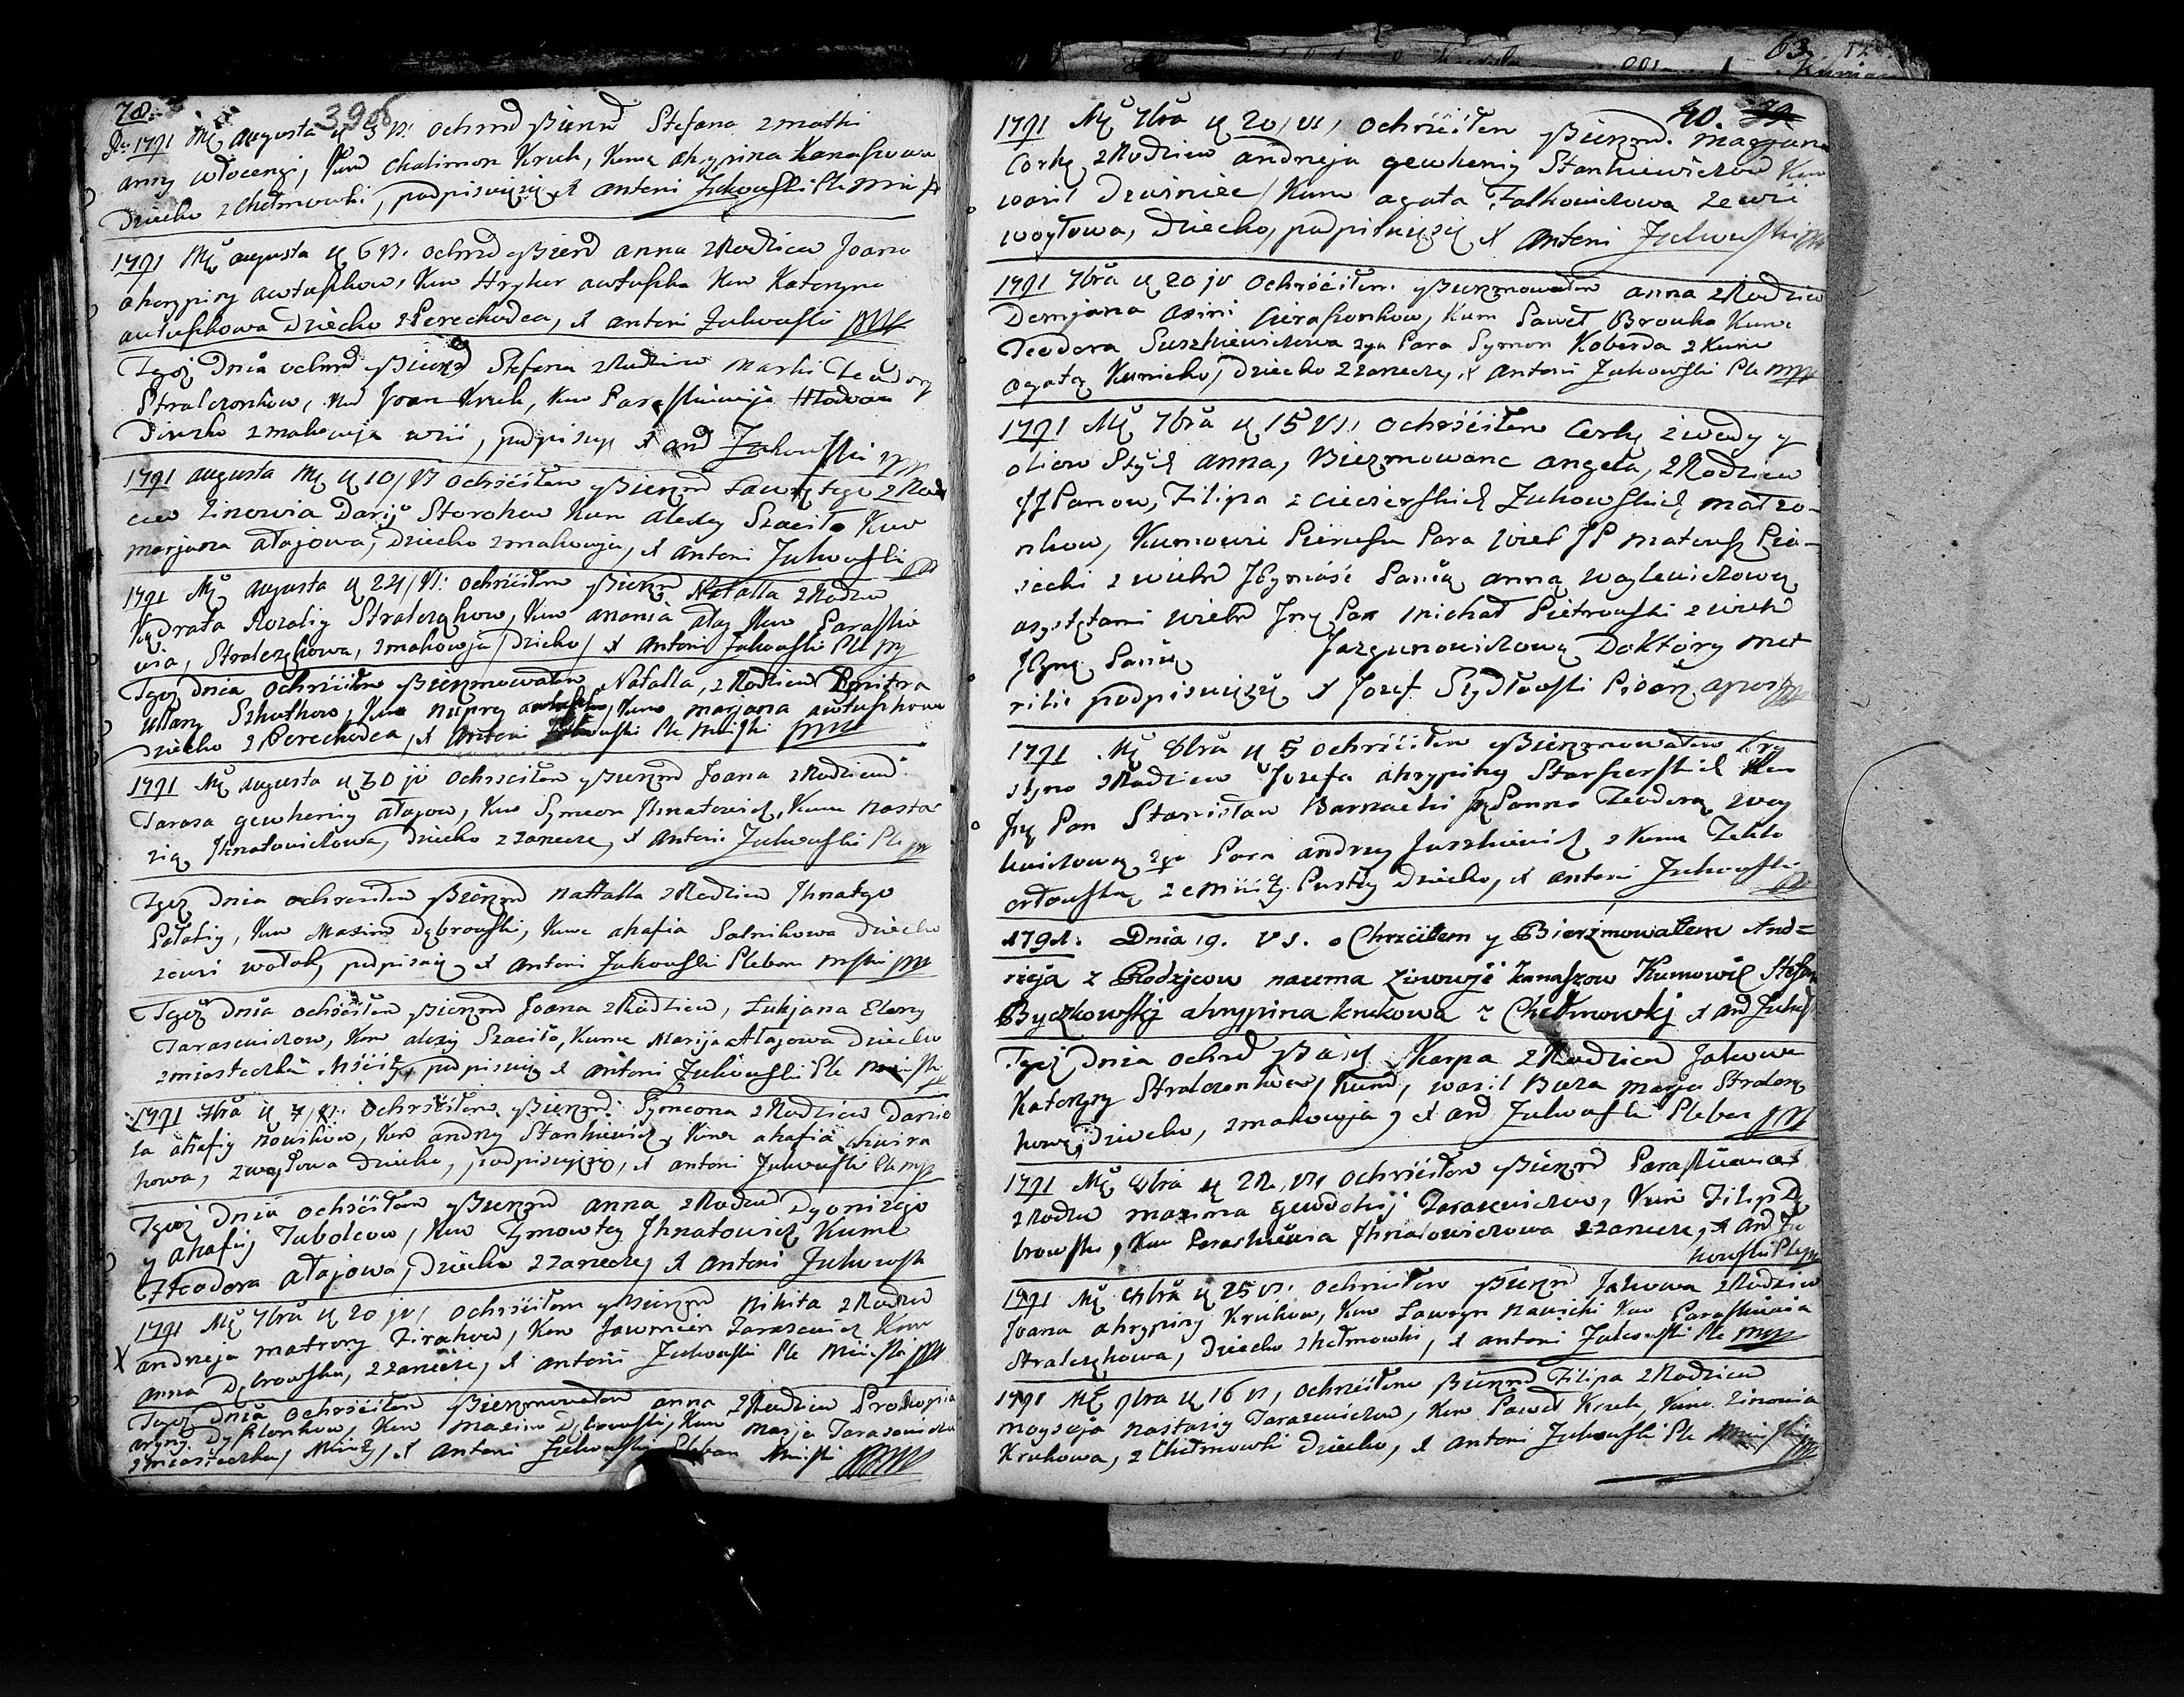 78.
396
Ro: 1791 Mca Augusta d. 3 VS. ochrzd y Bierzmd Stefana z matki
anny włocengi, Kum Chalimon Kruk, Kuma ahrypina Kanaszowa
Dziecko z Chełmowki, podpisuię się X Antoni Żukowski Ple Mińs
1791 Mca augusta d. 6 VS. ochrzd y Bierzd anna z Rodzicow Joana
ahrypiny awtuszkow, Kum Hryhor awtuszka Kum Kateryna
awtuszkowa Dziecko z Perechodca, X antoni Żukowski
Tegoż Dnia ochrzd y Bierzmd Stefana z Rodzicow Marki Teodory
Stralczonkow, Kum Joan Kruk, Kum Paraskiewija
Dziecko z makowja wsii, podpisuję X and Żukowski
1791 augusta Mca d. 10 VS ochrzciłem y Bierzmd Ławrętego z Rodzi
cow Zinowia Darij Storohow Kum alexey Szaciło Kum
marjana ałajowa, Dziecko z makowja, X antoni Żukowski
1791 Mca augusta d. 24 VS. ochrzciłem y Bierzmd Natalla z Rodzicow
Kądrata Rozaliy Stralczękow, Kum anania ałay Kum Paraskie
wia, Stralczękowa, z makowja Dziecko X Antoni Żukowski Ple
Tegoż dnia ochrzciłem y Bierzmowałem Natalla, z Rodzicow Dmitra
Ullany Szkutkow, Kum nuprey Kuma marjana awtuszkowa
Dziecko z Perechodca, X Antoni Żukowski Ple Miński
1791 Mca augusta d. 30 jv ochrzciłem y Bierzmd Joana z Rodzicow
Tarasa gewheniy ałajow, Kum Symeon Jhnatowicz, Kuma nasta
zią Jhnatowiczowa, Dziecko z zarecze, X Antoni Żukowski Ple
Tegoż dnia ochrzciłem y Bierzmd natalla z Rodzicow Jhnatego
Pałatiy, Kum Maxim Dąbrowski, Kuma ahafia Salnikowa Dziecko
ze wsi wołok, podpisuię X Antoni Żukowski Pleban Mński
Tegoż dnia ochrzciłem y Bierzmd Joana z Rodzicow, Łukjana Eleny
Taraszewiczow, Kum alexiy Szaciło, Kuma Marija Ałajowa Dziecko
z miasteczka Mściż, podpisuię X Antoni Żukowski Ple Miński
1791 7bra d. 7 VS. ochrzciłem y Bierzmd. Symeona z Rodzicow Dani
la ahafiy nowikow, Kum andrzy Stankiewicz, Kuma ahafia
kowa, z woytowa Dziecko, podpisuięsię, X antoni Żukowski Ple
Tegoż Dnia ochrzciłem y Bierzmd anna z Rodzicow Dyonizego
y ahafij Tabolcow, Kum Tymowtey Jhnatowicz, Kuma
Theodora ałajowa, Dziecko z zarecze, X Antoni Żukowski
1791 Mca 7bra d. 20 jv ochrzciłem y Bierzmd nikita z Rodzicow
andrzeja matrony Zirakow, Kum Ławrecien Taraszewicz Kum
anna Dąbrowska, z zarecze, X antoni Żukowski Ple Miński
Tegoż dnia ochrzciłem y Bierzmowałem anna z Rodzicow Prokopia
aryny, Kum Maxim Dąbrowski, Kum marja Taraszewiczo
z miasteczka Mściż, X antoni Żukowski Pleban Miński
40. 79
1791 Mca 7bra d. 20 VS, ochrzciłem y Bierzmd. Maryana
Corkę z Rodzicow andrzeja gewheniy Stankiewiczow Kum
wasil Kuma agata Falkowiczowa ze wsi
woytowa, Dziecko, podpisuięsię X Antoni Żukowski
1791 7bra d. 20 jv Ochrzciłem y Bierzmowałem anna z Rodzicow
Demjana axini Cieraszonkow, Kum Paweł Brouka Kuma
Teodora Suszkiewiczowa 2ga Para Symon Koberda z Kumą
agatą Kunicką, Dziecko z zarecze, X antoni Żukowski Ple
1791 Mca 7bra d. 15 VS. ochrzciłem Corkę z wody y
oliow Styd anna, Biezmowanc angela, z Rodzicow
JJPanow, Filipa z Ciecierskich Żukowskich małżo-
nkow, Kumowie Pierwsza Para Wiel JP mateusz Pia-
secki z wielm JEymość Panią anną woylewiczową
asystętami wielm Jmę Pan Michał Pietrowski z wielm
JEymę Panią Jazgunowiczową Doktory met
rikie podpisuięsię X Jozef Szydłowski Pisarz
1791 Mca 8bra d. 5 ochrzciłem y Bierzmowałem Kry
styna z Rodzicow Jozefa ahrypiny Starszerskich Kum
Jmę Pan Stanisław Barnacki JPanna Teodorą Woy
lewiczową 2ga Para andrzey Juszkiewicz z Kumą Teklą
orłowską z Pustky Dziecko, X antoni Żukowski
1791. Dnia 19. VS. oChrzciłem y Bierzmowałem And=
rieja z Rodzjcow nauma Zinowji Kanaszow Kumowie Stefan
Byczkowskj ahrypina krukowa z Chełmowkj X And Żukows
Tegoż Dnia ochrd y Biesd Karpa z Rodzicow Jakowa
Kateryny Stralczonkow, Kumd, wasil Buza marja Stralczę
kowa, Dziecko, z makowja, X And Żukowski Pleban
1791 Mca 8bra d. 22, VS, ochrzciłem y Bierzmd Paraskiewia
z Rodzicow maxima Gewdokij Taraszewiczow, Kum Filip Dą
browski, Kum Paraskiewia Jhnatowiczowa z zarecze, X And Żu
kowski Ple
1791 Mca 8bra d. 25 VS. ochrzciłem y Bierzmd Jakowa z Rodzicow
Joana ahrypiny Krukow, Kum Ławryn nawicki Kum Paraskiewia
Stralczękowa, Dziecko z Chełmowki, X antoni Żukowski Ple
1791 Mca 9bra d. 16 VS, ochrzciłem y Bierzmd Filipa z Rodzicow
moyseja nastaziy Taraszewiczow, Kum Paweł Kruk, Kuma Zinowia
Krukowa, z Chełmowki Dziecko, X antoni Żukowski Ple Miński